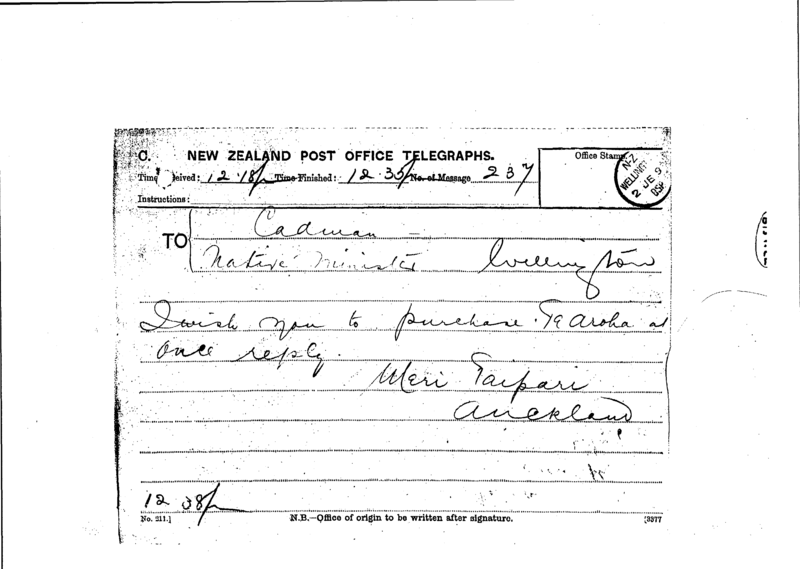 C. NEW ZEALAND POST OFFICE TELEGRAPHS.
Office Stamp.
Time Received: 12.18p Time Finished: 12.35p No. of Message 237
Instructions:
N-Z
WELLINGT
2 JE 9
TO Cadman —
Native Minister Wellington
I wish you to purchase Te Aroha at
once reply.
Meri Taipari
Auckland
12 38p
No. 211.] N.B.—Office of origin to be written after signature. [3377